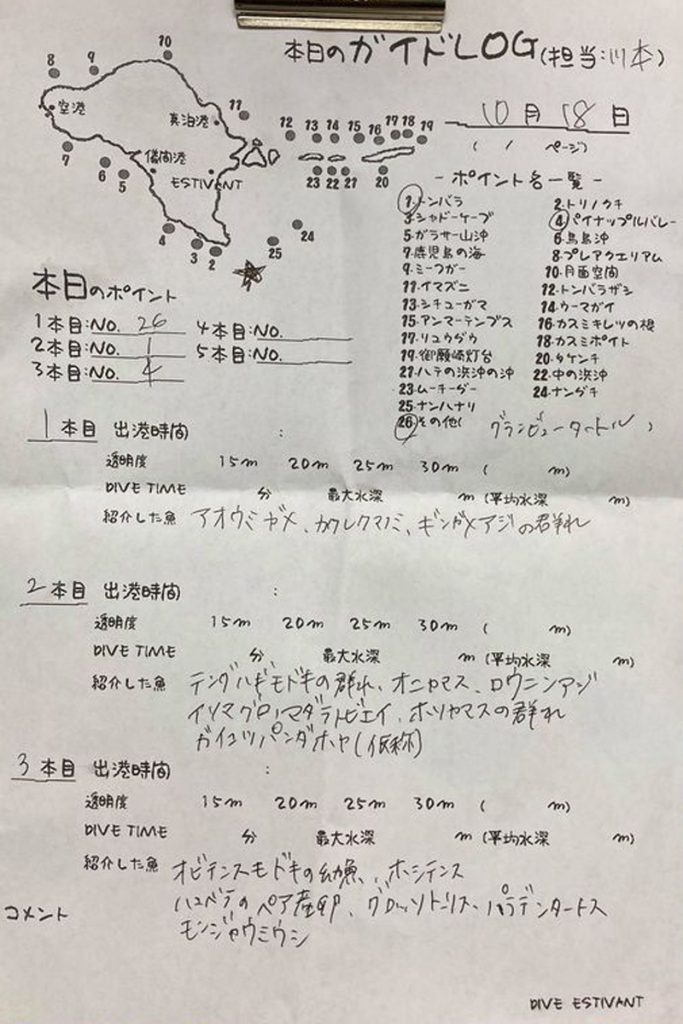 本日のガイドLOG(担当:川本)
10月18日
( / ページ)
8 9 10
空港
真泊港
11
12 13 14 15 16 17 18 19
7
儀間港
6 5
ESTIVANT
23 22 21 20
4 3 2
25 24
-ポイント名一覧-
1.トンバラ 2.トリノクチ
3.シャドーケーブ 4.パイナップルバレー
5.ガラサー山沖 6.鳥島沖
7.鹿児島の海 8.プレアクエリアム
9.ミーフガー 10.月面空間
11.イマズニ 12.トンバラザシ
13.シチューガマ 14.ウーマガイ
15.アンマーテンプス 16.カスミキレツの根
17.リュウグウ 18.カスミポイント
19.御願崎灯台 20.タケンチ
21.ハテの浜沖の沖 22.中の浜沖
23.ムーチーグー 24.ナングチ
25.ナンハナリ
26.その他( グランビュータートル )
本日のポイント
1本目:NO. 26 4本目:NO.
2本目:NO. 1 5本目:NO.
3本目:NO. 4
1本目 出港時間 :
透明度 15m 20m 25m 30m ( m)
DIVE TIME 分 最大水深 m (平均水深 m)
紹介した魚 アオウミガメ、カクレクマノミ、ギンガメアジの群れ
2本目 出港時間 :
透明度 15m 20m 25m 30m ( m)
DIVE TIME 分 最大水深 m (平均水深 m)
紹介した魚 テングハギモドキの群れ、オニカマス、ロウニンアジ
イソマグロ、マダラトビエイ、ホソカマスの群れ
ガイコツパンダホヤ(仮称)
3本目 出港時間 :
透明度 15m 20m 25m 30m ( m)
DIVE TIME 分 最大水深 m (平均水深 m)
紹介した魚 オビテンスモドキの幼魚、ホシテンス
ハナゴンベのペア産卵、グロッソドーリス・パラデンタータス
モンジャウミウシ
コメント
DIVE ESTIVANT